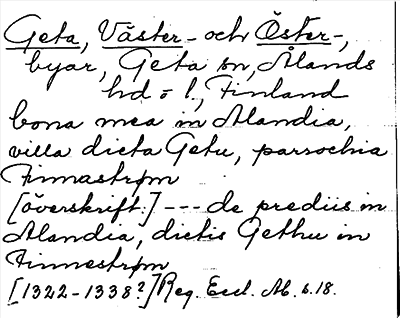 Geta, Väster- och Öster-,
byar, Geta sn, Ålands
hd o l., Finland
bona mea in Alandia,
villa dicta Getu, parrochia
Finnastrøm
[överskrift:] --- de prediis in
Alandia, dictis Gethu in
Finnestrøm
[1322-1338?] Reg. Eccl. Ab. s. 18.